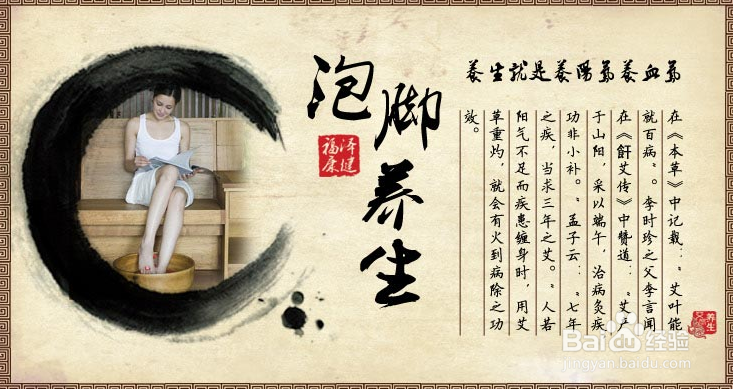 养生就是养阳气养血气
泡脚养生
泽健
福康
在《本草》中记载："艾叶能
就百病"。李时珍之父李言闻
在《艾传》中赞道："艾产
于山阳，采以端午，治病灸疾
功非小补。"孟子云："七年
之疾，当求三年之艾。"人若
阳气不足而疾患缠身时，用艾
草重灼，就会有火到病除之功
效。
养生
Baidu经验
jingyan.baidu.com